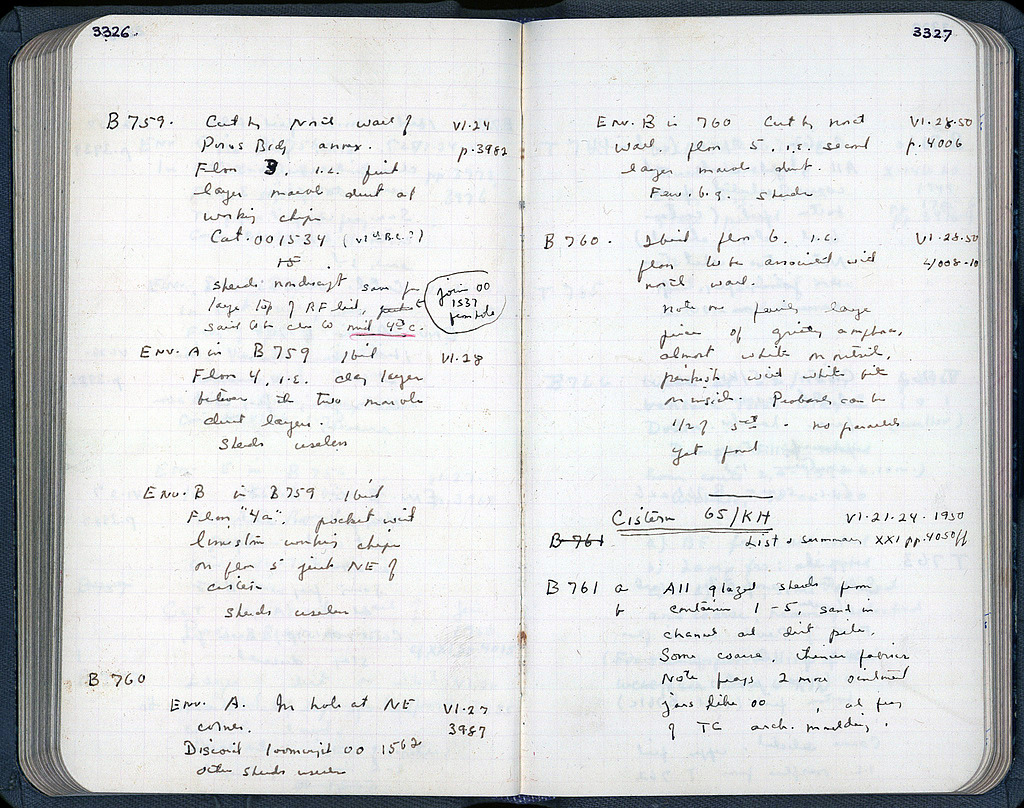 3326
B 759. Cut by North wall of VI.24
Poros Bldg annex. p.3982
Floor 3 i.e. first
layer marble dust at
working chips
Cat. OO 1534 (VIth BC?)
15
sherds nondescript save for
large top of RF lid,
said to be close to mid 4th c.
join OO
1537
Env. A in B 759 Ibid VI.28
Floor 4, i.e. clay layer
between the two marble
dust layers.
Sherds useless
Env. B in B 759 Ibid
Floor "4a", pocket with
limestone working chips
on floor 5 just NE of
cistern
Sherds useless
B 760
Env. A. In hole at NE VI.27
corner. 3987
Discard loomweight OO 1562
other sherds useless
3327
Env. B in 760 Cut by north VI.28.50
wall, floor 5. i.e. second p.4006
layer marble dust.
Few b.g. sherds
B 760. Ibid floor 6. i.e. VI.28.50
floor to be associated with 4/008-10
north wall.
Note on points large
pieces of gritty amphora,
almost white on outside,
pinkish with white bits
on inside. Probably can be
1/2 of 5th - no parallels
yet found
Cistern 65/KH VI.21.24.1950
B 761 List & summary XXI pp.4050ff
B 761 a All glazed sherds from
b containers 1-5, sand in
channel and dirt pile.
Some coarse, thinner fabrics
Note frags 2 more
jars like OO , and frag
of TC arch. moulding.